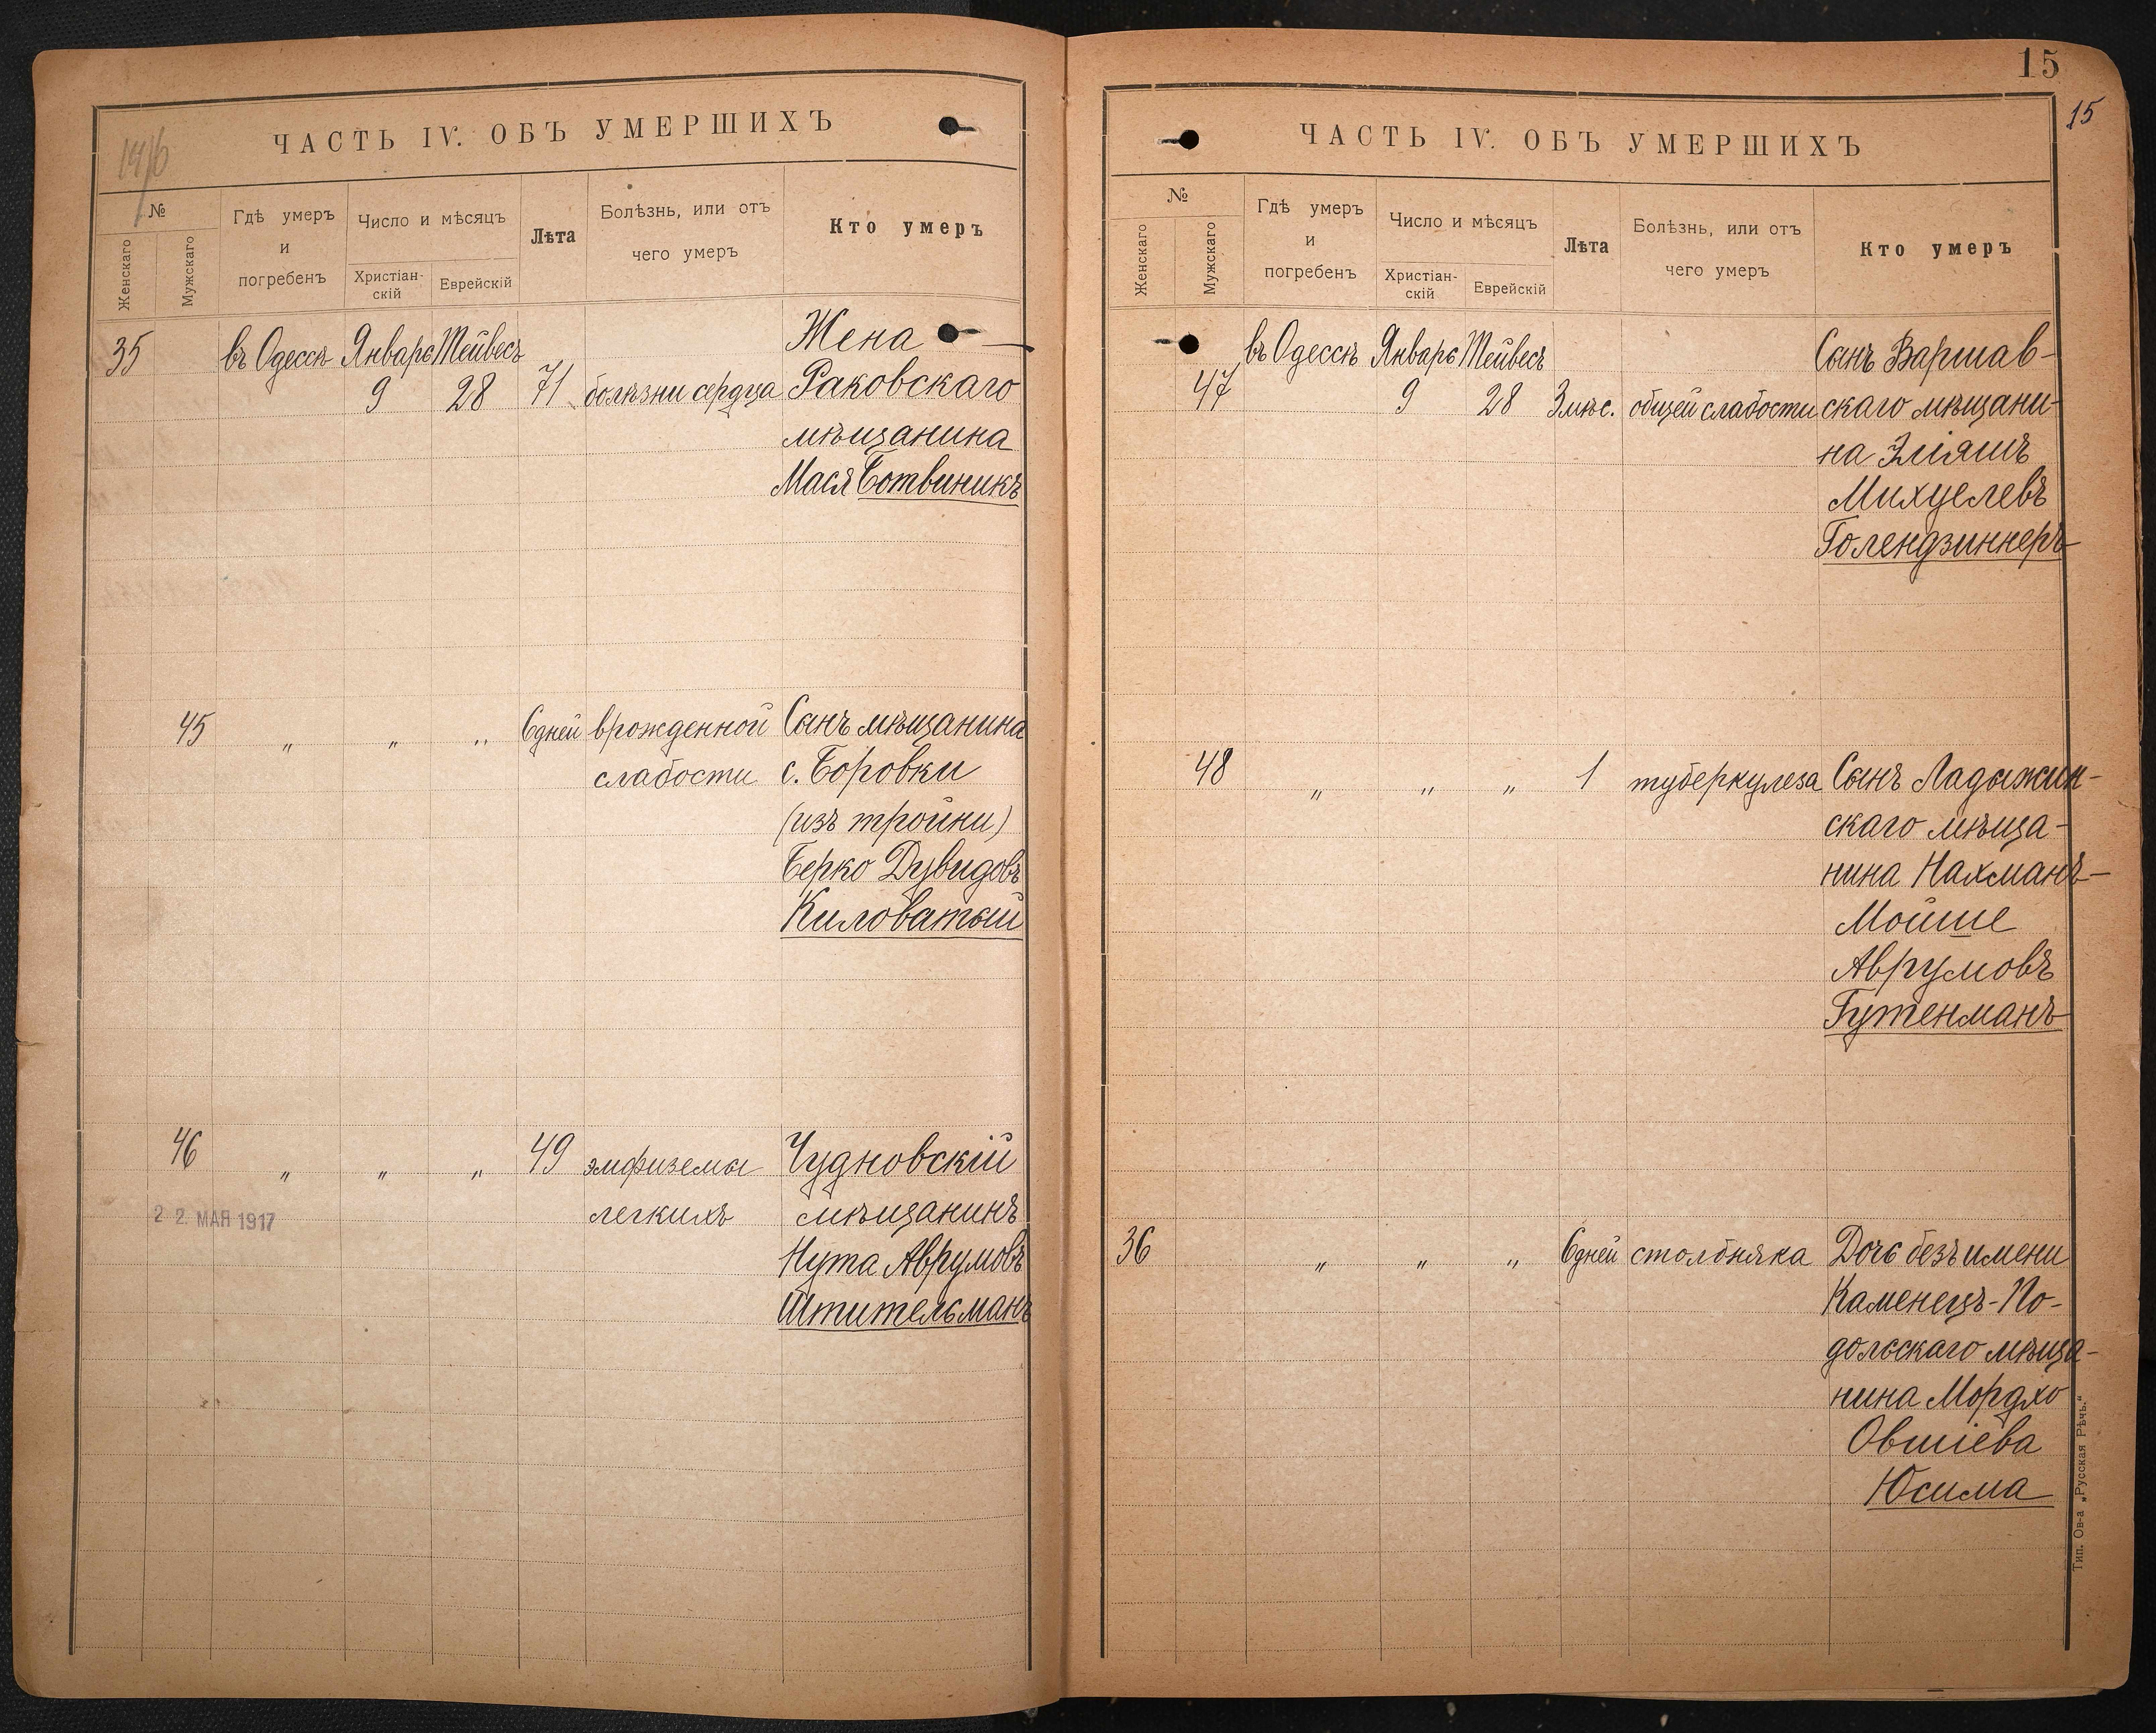 14/6
ЧАСТЬ IV. ОБЪ УМЕРШИХЪ
№
Женскаго
Мужскаго
Гдѣ умеръ
и
погребенъ
Число и мѣсяцъ
Христіан-
скій
Еврейскій
Лѣта
Болѣзнь, или отъ
чего умеръ
Кто умеръ
35 въ Одессѣ Январь Тейвесъ Жена
9 28 71 болѣзни сердца Раковскаго
мѣщанина
Мася Ботвиникъ
45 " " " 6 дней врожденной Сынъ мѣщанина
слабости с. Боровки
(изъ тройни)
Берко Дувидовъ
Киловатый
46 " " " 49 эмфиземы Чудновскій
22 МАЯ 1917 легкихъ мѣщанинъ
Нута Аврумовъ
Штительманъ
15
15
ЧАСТЬ IV. ОБЪ УМЕРШИХЪ
№
Женскаго
Мужскаго
Гдѣ умеръ
и
погребенъ
Число и мѣсяцъ
Христіан-
скій
Еврейскій
Лѣта
Болѣзнь, или отъ
чего умеръ
Кто умеръ
въ Одессѣ Январь Тейвесъ Сынъ Варшав-
47 9 28 3 мѣс. общей слабости скаго мѣщани-
на Эліяшъ
Михцелевъ
Голендзиннеръ
48 " " " 1 туберкулеза Сынъ Ладыжин-
скаго мѣща-
нина Нахманъ-
Мойше
Аврумовъ
Гутенманъ
36 " " " 6 дней столбняка Дочь безъ имени
Каменецъ-По-
дольскаго мѣща-
нина Мордхо
Овшіева
Юсима
Тип. Ов-а „Русская Рѣчь."